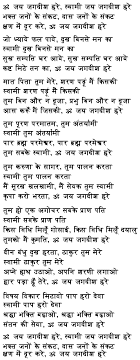 ॐ जय जगदीश हरे, स्वामी जय जगदीश हरे
भक्त जनों के संकट, दास जनों के संकट
क्षण में दूर करे, ॐ जय जगदीश हरे
जो ध्यावे फल पावे, दुख बिनसे मन का
स्वामी दुख बिनसे मन का
सुख सम्पति घर आवे, सुख सम्पति घर आवे
कष्ट मिटे तन का, ॐ जय जगदीश हरे
मात पिता तुम मेरे, शरण गहूं मैं किसकी
स्वामी शरण गहूं मैं किसकी
तुम बिन और न दूजा, प्रभु बिन और न दूजा
आस करूं मैं जिसकी, ॐ जय जगदीश हरे
तुम पूरण परमात्मा, तुम अंतर्यामी
स्वामी तुम अंतर्यामी
पार ब्रह्म परमेश्वर, पार ब्रह्म परमेश्वर
तुम सबके स्वामी, ॐ जय जगदीश हरे
तुम करुणा के सागर, तुम पालन करता
स्वामी तुम पालन करता
मैं मूरख खलकामी, मैं सेवक तुम स्वामी
कृपा करो भरता, ॐ जय जगदीश हरे
तुम हो एक अगोचर सबके प्राण पति
स्वामी सबके प्राण पति
किस विधि मिलूँ गोसाई, किस विधि मिलूँ दयालु
तुमको मैं कुमति, ॐ जय जगदीश हरे
दीन बंधु दुख हरता, ठाकुर तुम मेरे
स्वामी ठाकुर तुम मेरे
अपने हाथ उठाओ, अपनि शरणी लगाओ
द्वार पड़ा हूँ तेरे, ॐ जय जगदीश हरे
विषय विकार मिटाओ पाप हरो देवा
स्वामी पाप हरो देवा
श्रद्धा भक्ति बढ़ाओ, श्रद्धा भक्ति बढ़ाओ
संतन की सेवा, ॐ जय जगदीश हरे
ॐ जय जगदीश हरे, स्वामी जय जगदीश हरे
भक्त जनों के संकट, दास जनों के संकट
क्षण में दूर करे, ॐ जय जगदीश हरे